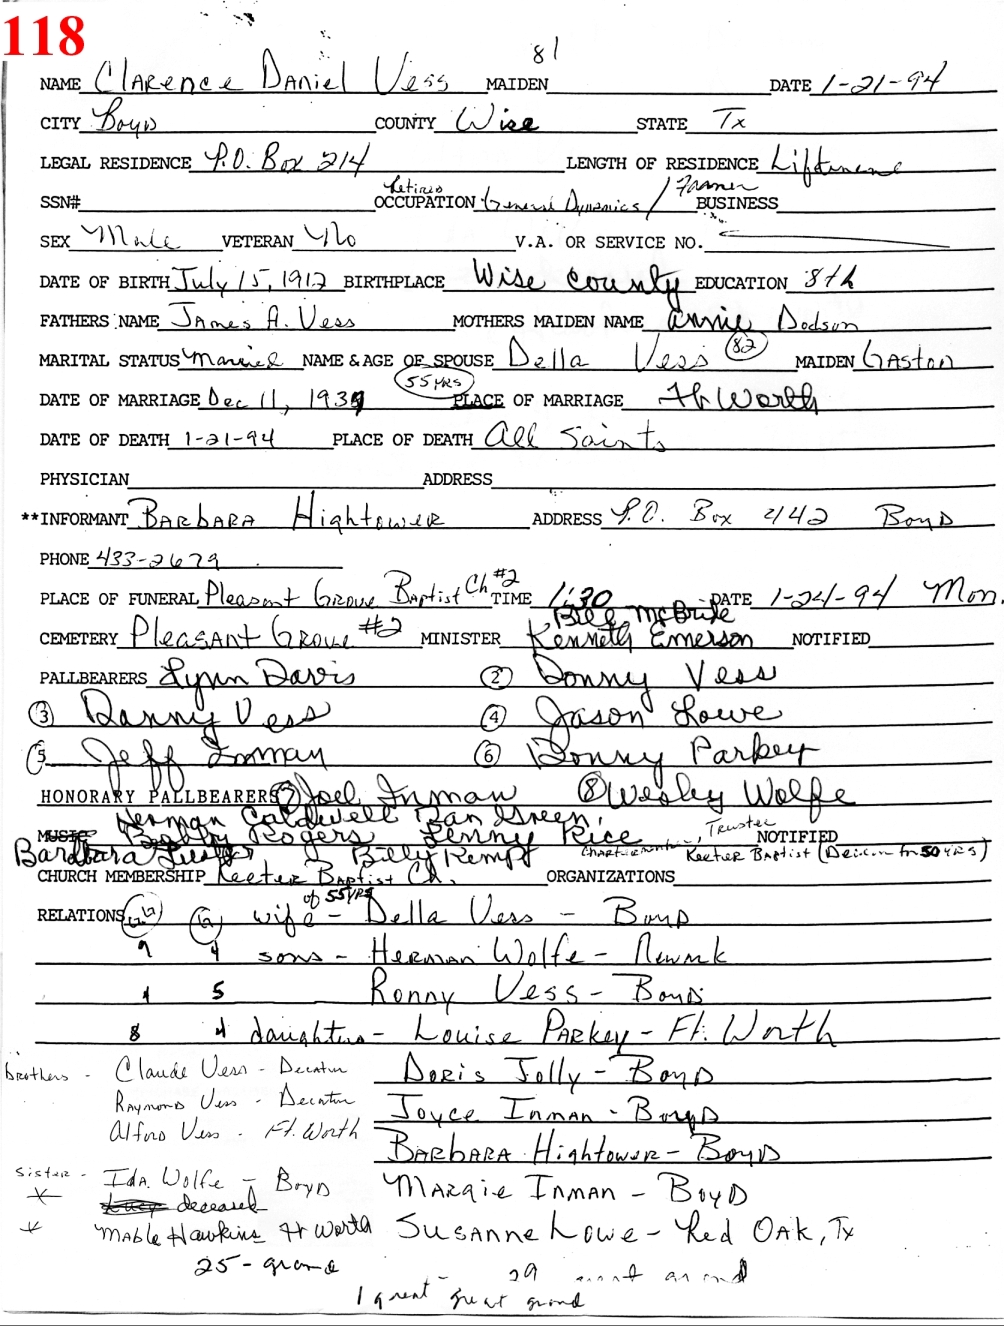 118
81
NAME Clarence Daniel Vess MAIDEN DATE 1-21-94
CITY Boyd COUNTY Wise STATE Tx
LEGAL RESIDENCE P.O. Box 214 LENGTH OF RESIDENCE Lifetime
Retired / Farmer
SSN# OCCUPATION General Dynamics BUSINESS
SEX Male VETERAN No V.A. OR SERVICE NO.
DATE OF BIRTH July 15, 1912 BIRTHPLACE Wise County EDUCATION 8th
FATHERS NAME James A. Vess MOTHERS MAIDEN NAME Annie Dodson
MARITAL STATUS Married NAME & AGE OF SPOUSE Della Vess 82 MAIDEN Gaston
55 yrs
DATE OF MARRIAGE Dec 11, 1939 PLACE OF MARRIAGE Ft Worth
DATE OF DEATH 1-21-94 PLACE OF DEATH All Saints
PHYSICIAN ADDRESS
**INFORMANT Barbara Hightower ADDRESS P.O. Box 442 Boyd
PHONE 433-2679
PLACE OF FUNERAL Pleasant Grove Baptist Ch #2 TIME 1:30 DATE 1-24-94 Mon.
Bill McBride
CEMETERY Pleasant Grove #2 MINISTER Kenneth Emerson NOTIFIED
PALLBEARERS Lynn Davis ② Donny Vess
③ Danny Vess ④ Jason Lowe
⑤ Jeff Inman ⑥ Donny Parkey
HONORARY PALLBEARERS ⑦ Joel Inman ⑧ Wesley Wolfe
Herman Caldwell Dan Green,
MUSIC Bobby Rogers Lenny Rice , Trustee NOTIFIED
Bardbara Billy Kempt Keeter Baptist (Deacon for 50 yrs)
CHURCH MEMBERSHIP Keeter Baptist Ch. ORGANIZATIONS
of 55 yrs
RELATIONS wife - Della Vess - Boyd
9 4 sons - Herman Wolfe - Newark
1 5 Ronny Vess - Boyd
8 4 daughters - Louise Parkey - Ft. Worth
brothers - Claude Vess - Decatur Doris Jolly - Boyd
Raymond Vess - Decatur Joyce Inman - Boyd
Alford Vess - Ft. Worth Barbara Hightower - Boyd
Sister - Ida Wolfe - Boyd Margie Inman - Boyd
deceased
Mable Hawkins Ft Worth Susanne Lowe - Red Oak, Tx
25 - grand 29 great grand
1 great great grand